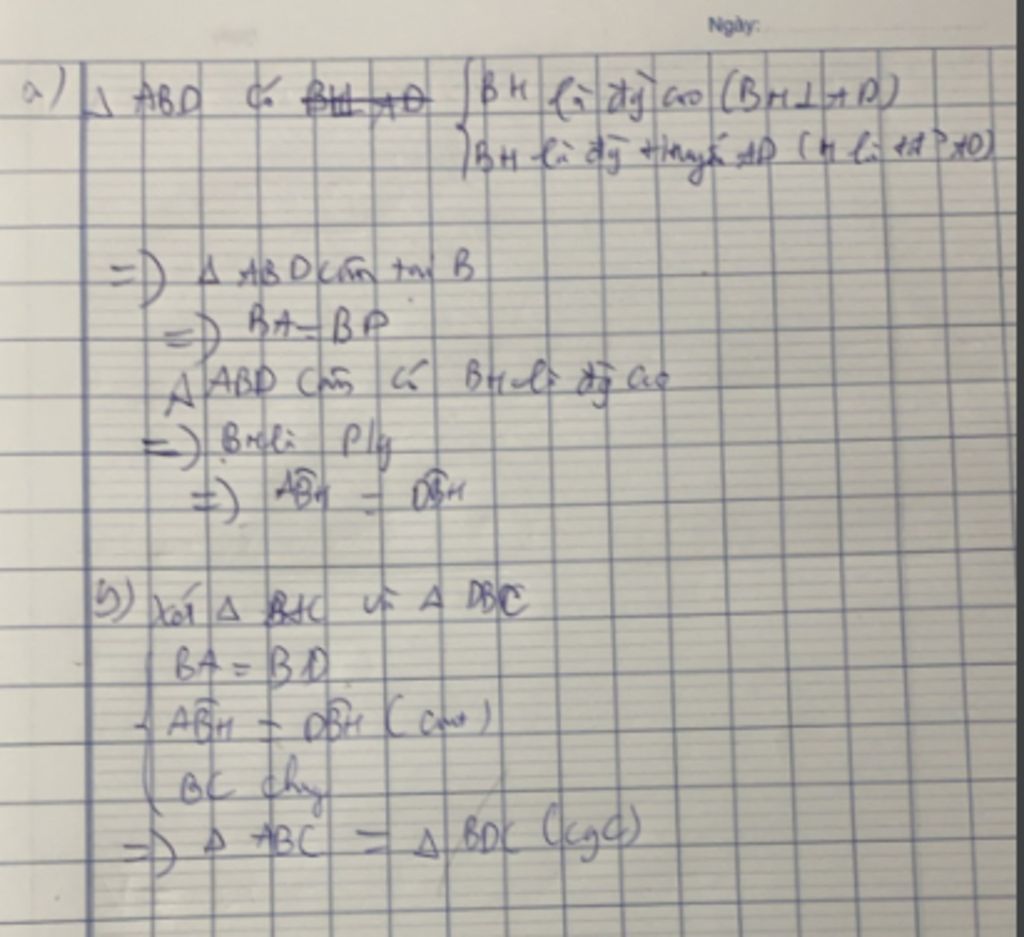 Ngày:
a) Δ ABD có BH AD { BH là đg cao (BH ⊥ AD)
BH là đg tuyến AD (H là tđ AD)
=> Δ ABD cân tại B
=> BA = BD
Δ ABD cân có BH là đg cao
=> BH là p/g
=> ABH = DBH
b) Xét Δ BAC và Δ DBC
BA = BD
ABH = DBH (cmt)
BC chg
=> Δ ABC = Δ BDC (cgc)